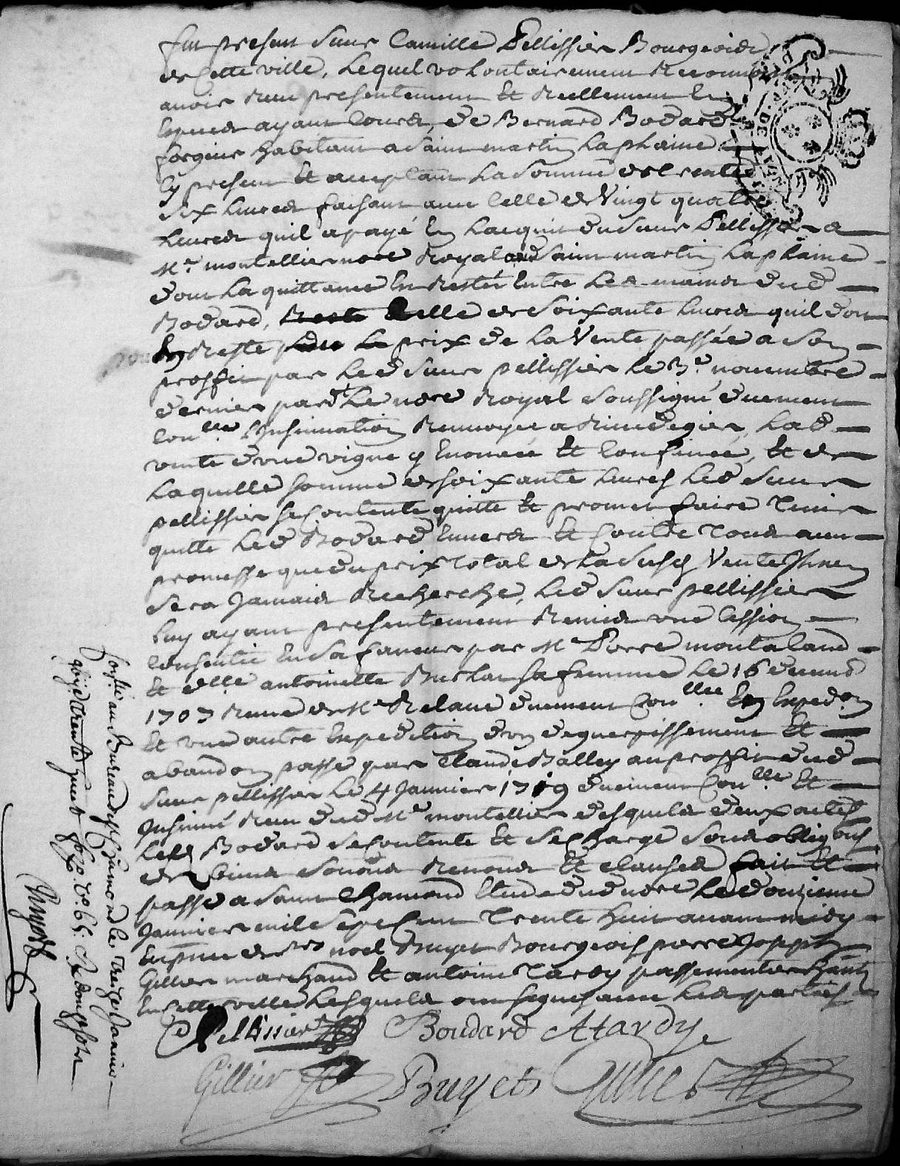 fut present sieur Camille Pellissier Bourgeois de
de Cette ville, Lequel volontairement
avoir receu presentement et Reellement En
Especes ayant Cours, de Bernard Bodard
forgeur habitant a Saint martin Laplaine
Cy present et acceptant La Somme de trente
Six Livres faisant avec Celle de Vingt quatre
Livres quil a payé En Lacquit dud sieur Pellissier a
Mr montellier nore Royal aud Saint martin Laplaine
dont La quittance En Restée Entre Les mains dud
Bodard, Celle de Soixante Livres quil doit
de Reste prix de La Vente passée a Son
proffit par Led Sieur pellissier Le novembre
dernier pard. Le nore Royal Soussigné duement
Con.lle Renvoyee a Rivedegier, Lad
vente d'une vigne y Enoncée et Confinée, et de
Laquelle Somme de Soixante Livres Led Sieur
pellissier Se Contente quitte et promet faire Tenir
quitte Led Bodard Envers et Contre Tous avec
promesse que du prix Total de La Susd Vente Il ne
Sera Jamais Recherche, Led Sieur pellissier
Luy ayant presentement Remis une Cession
Consentie En Sa faveur par Mr Pierre montaland
et dlle antoinette Sa femme Le 16
1707 Receue de Mr duement Con.lle En Expedon
Et une autre Expedition d'un deguerpissement et
abandon passé par Claude Balley au proffit dud
Sieur pellissier Le 4 Janvier 1719 duement Con.lle et
Insinué Receu dud Mr montellier desquels deux actes
Led Bodard Se Contente et Se Charge Sous obligons
de biens Renons et Clauses fait et
passé a Saint Chamond Etude dud nore Le douzieme
Janvier mil Sept Cent Trente huit avant midy
En pnce de noel Bruyet Bourgeois pierre Joseph
Gillier marchand et antoine Tardy passementier hants
En Cette ville Lesquels ont Signé avec Les parties
Pellissier Boudard ATardy
Gillier Bruyet
au Bureau de St Chamond le Treize Janvier
trente huit